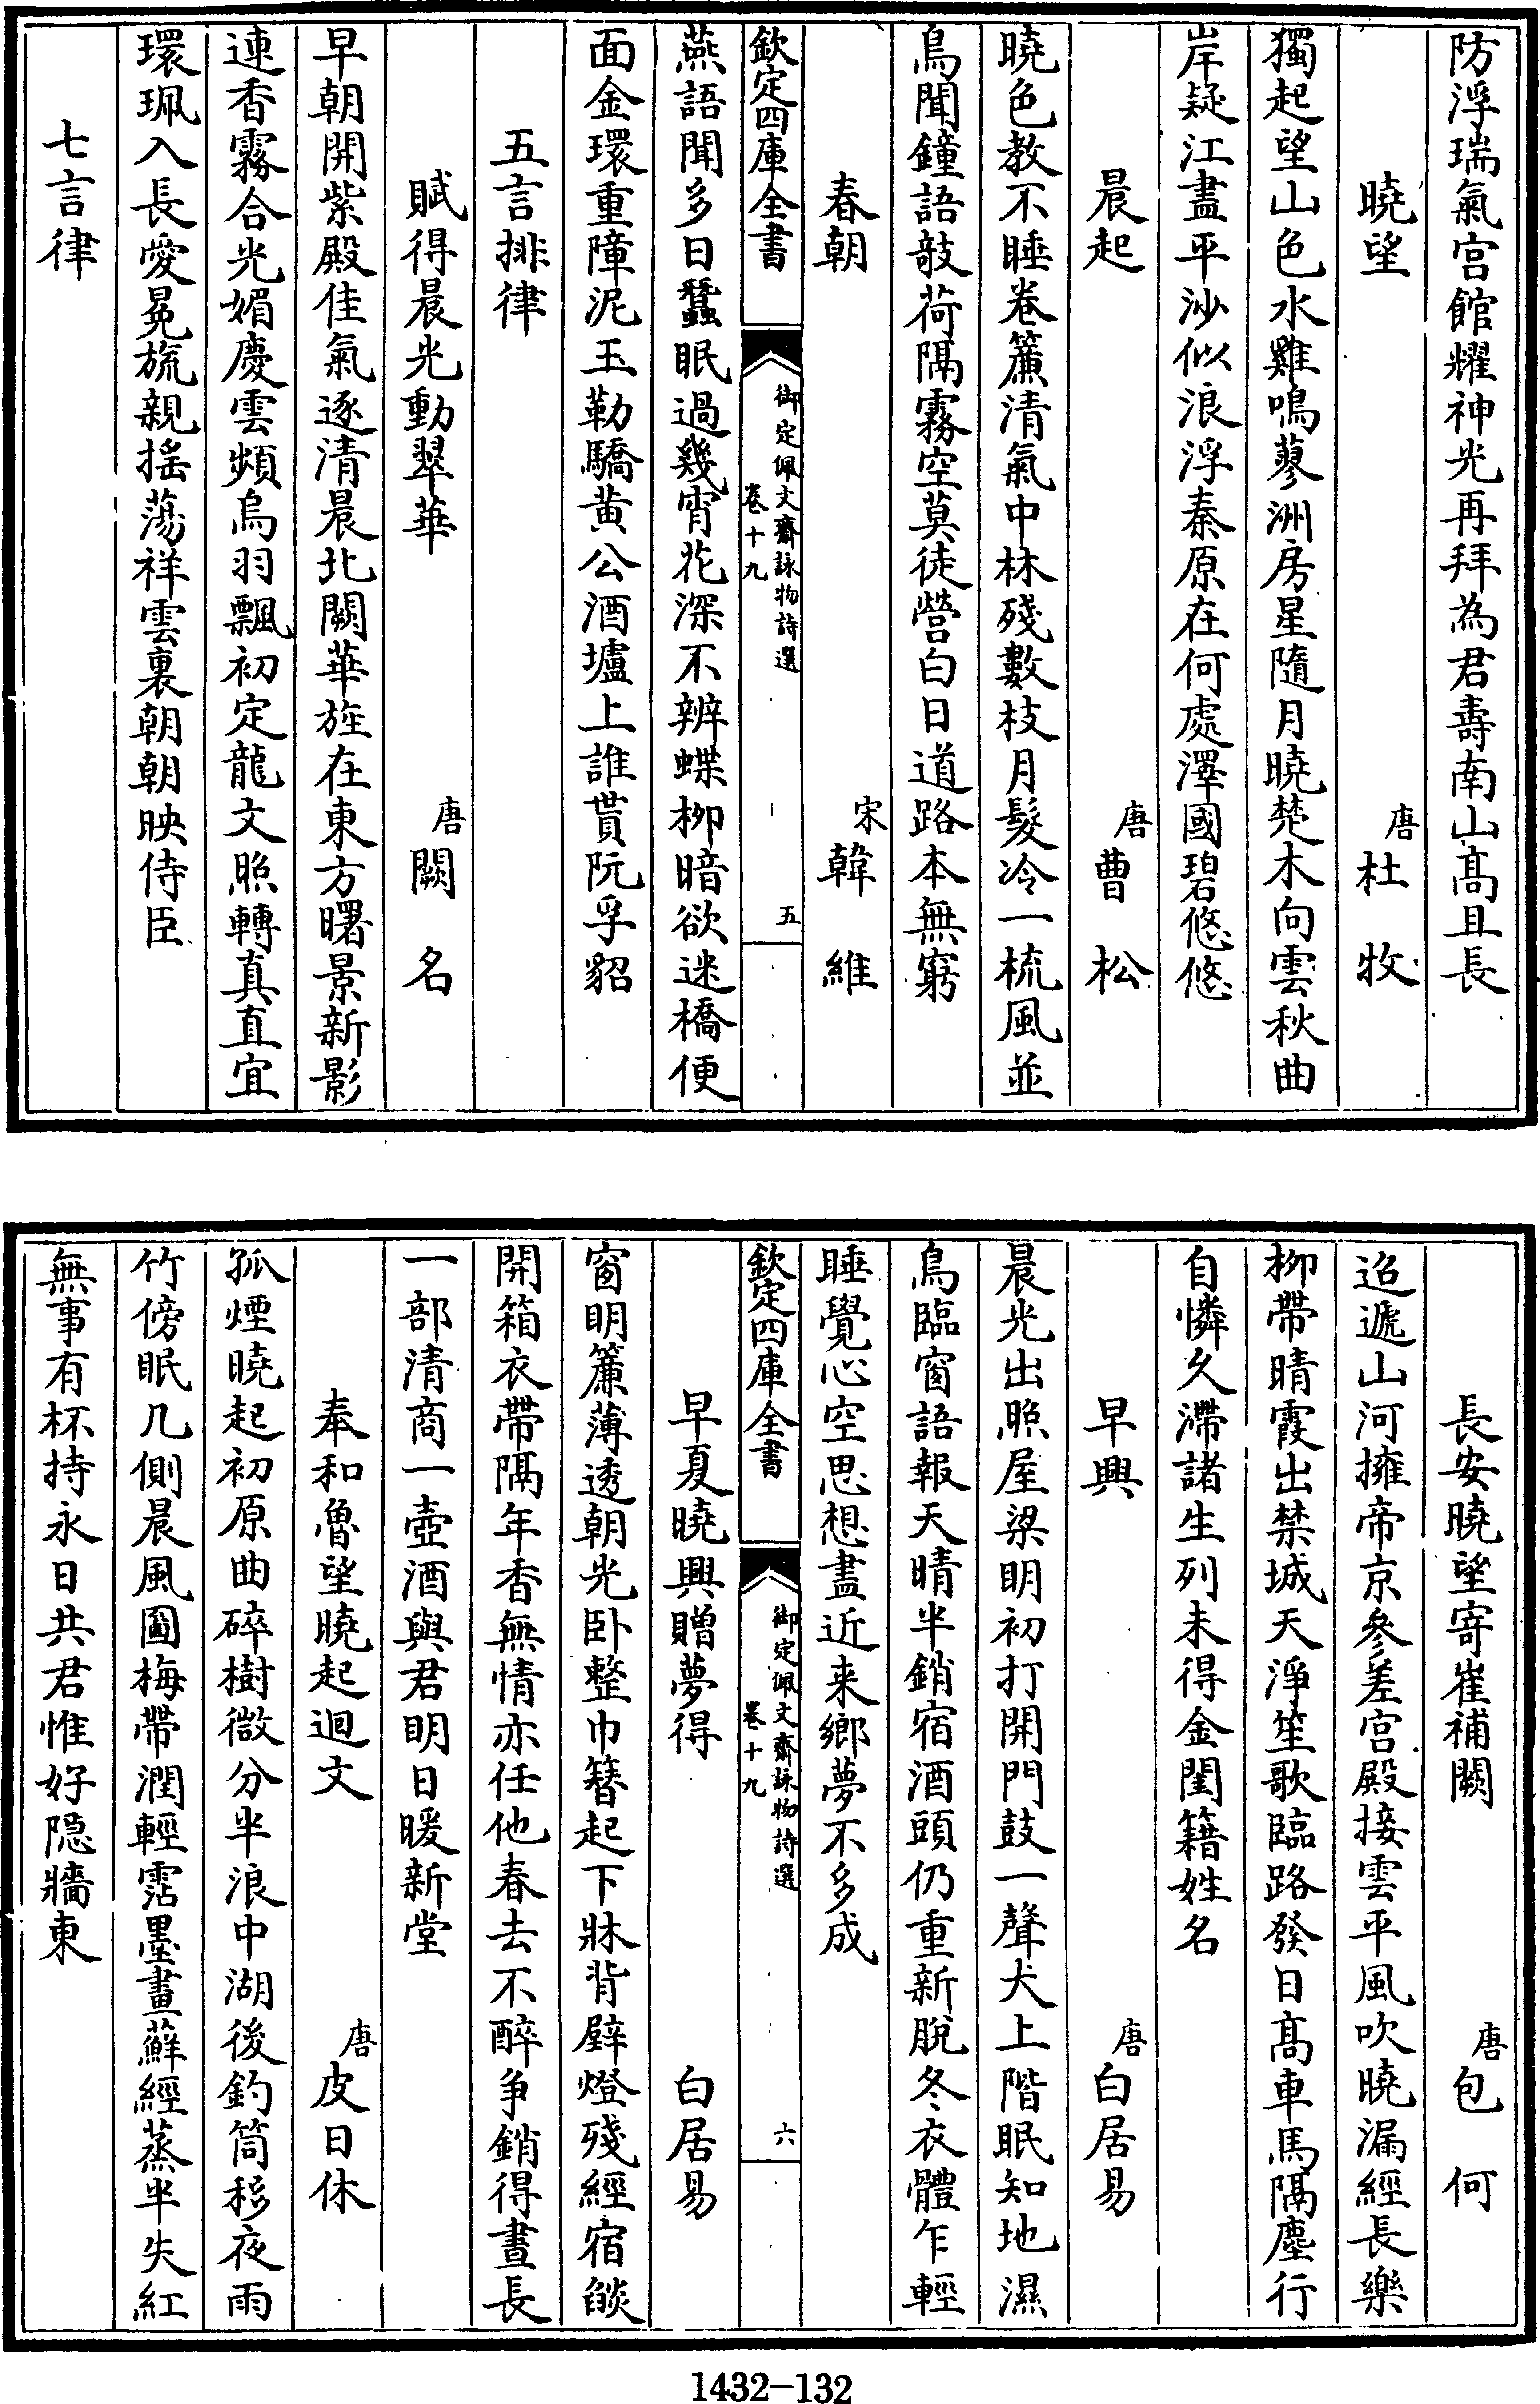 防浮瑞氣宫館耀神光再拜為君壽南山髙且長
曉望　唐杜牧
獨起望山色水雞鳴蓼洲房星隨月曉楚木向雲秋曲
岸疑江盡平沙似浪浮秦原在何處澤國碧悠悠
晨起　唐曹松
曉色教不睡卷簾清氣中林殘數枝月髮冷一梳風並
鳥聞鐘語敧荷隔霧空莫徒營白日道路本無窮
春朝　宋韓維
欽定四庫全書　御定佩文齋詠物詩選　卷十九　五
燕語聞多日蠶眠過幾宵花深不辨蝶柳暗欲迷橋便
面金環重障泥玉勒驕黄公酒壚上誰貰阮孚貂
五言排律
賦得晨光動翠華　唐闕名
早朝開紫殿佳氣逐清晨北闕華旌在東方曙景新影
連香霧合光媚慶雲頻鳥羽飄初定龍文照轉真直宜
環珮入長愛冕旒親摇蕩祥雲裏朝朝映侍臣
七言律
長安曉望寄崔補闕　唐包何
迢遞山河擁帝京參差宫殿接雲平風吹曉漏經長樂
柳帶晴霞出禁城天淨笙歌臨路發日髙車馬隔塵行
自憐久滯諸生列未得金閨籍姓名
早興　唐白居易
晨光出照屋梁明初打開門鼓一聲犬上階眠知地濕
鳥臨窗語報天晴半銷宿酒頭仍重新脫冬衣體乍輕
睡覺心空思想盡近来鄉夢不多成
欽定四庫全書　御定佩文齋詠物詩選　卷十九　六
早夏曉興贈夢得　白居易
窗明簾薄透朝光卧整巾簪起下牀背壁燈殘經宿燄
開箱衣帶隔年香無情亦任他春去不醉争銷得晝長
一部清商一壺酒與君明日暖新堂
奉和魯望曉起迴文　唐皮日休
孤煙曉起初原曲碎樹微分半浪中湖後釣筒移夜雨
竹傍眠几側晨風圖梅帶潤輕霑墨畫蘚經蒸半失紅
無事有杯持永日共君惟好隐牆東
1432-132